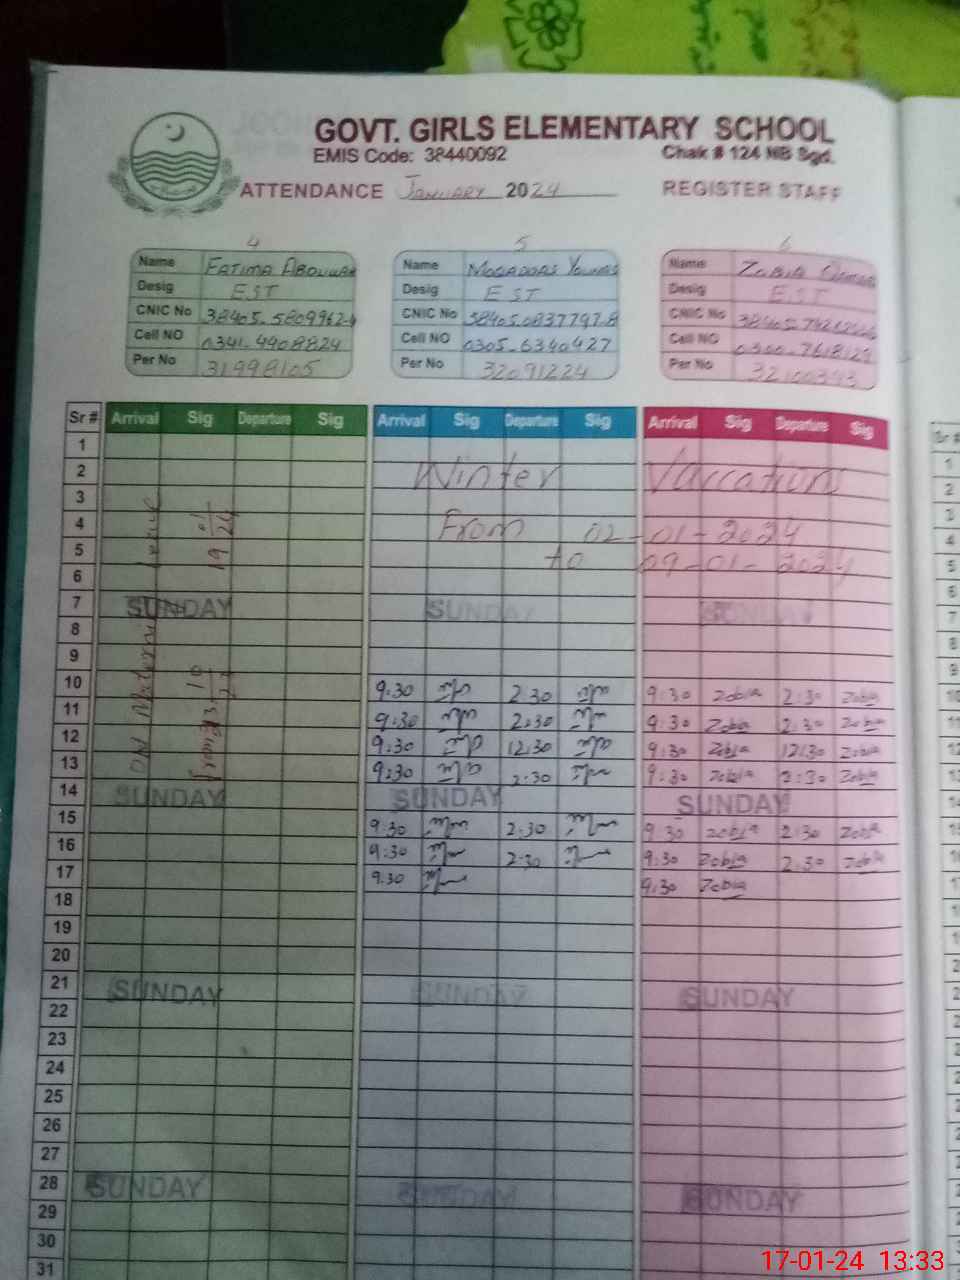 GOVT. GIRLS ELEMENTARY SCHOOL
EMIS Code: 38440092 Chak # 124 NB Sgd.
ATTENDANCE January 2024 REGISTER STAFF
4 5 6
Name Fatima Name Name Zobia
Desig EST Desig EST Desig EST
CNIC No CNIC No CNIC No
Cell NO 0341-4908824 Cell NO 0305-6340427 Cell NO
Per No 31998105 Per No 32091224 Per No
Sr # Arrival Sig Departure Sig Arrival Sig Departure Sig Arrival Sig Departure Sig
1
2 Winter Vaccations
3
4 From 02-01-2024
5 to 09-01-2024
6
7 SUNDAY SUNDAY SUNDAY
8
9
10 9:30 2:30 9:30 Zobia 2:30 Zobia
11 9:30 2:30 9:30 Zobia 2:30 Zobia
12 9:30 12:30 9:30 Zobia 12:30 Zobia
13 9:30 2:30 9:30 Zobia 2:30 Zobia
14 SUNDAY SUNDAY SUNDAY
15 9:30 2:30 9:30 Zobia 2:30 Zobia
16 9:30 2:30 9:30 Zobia 2:30 Zobia
17 9:30 9:30 Zobia
18
19
20
21 SUNDAY SUNDAY SUNDAY
22
23
24
25
26
27
28 SUNDAY SUNDAY SUNDAY
29
30
31
ON Maternity Leave
17-01-24 13:33